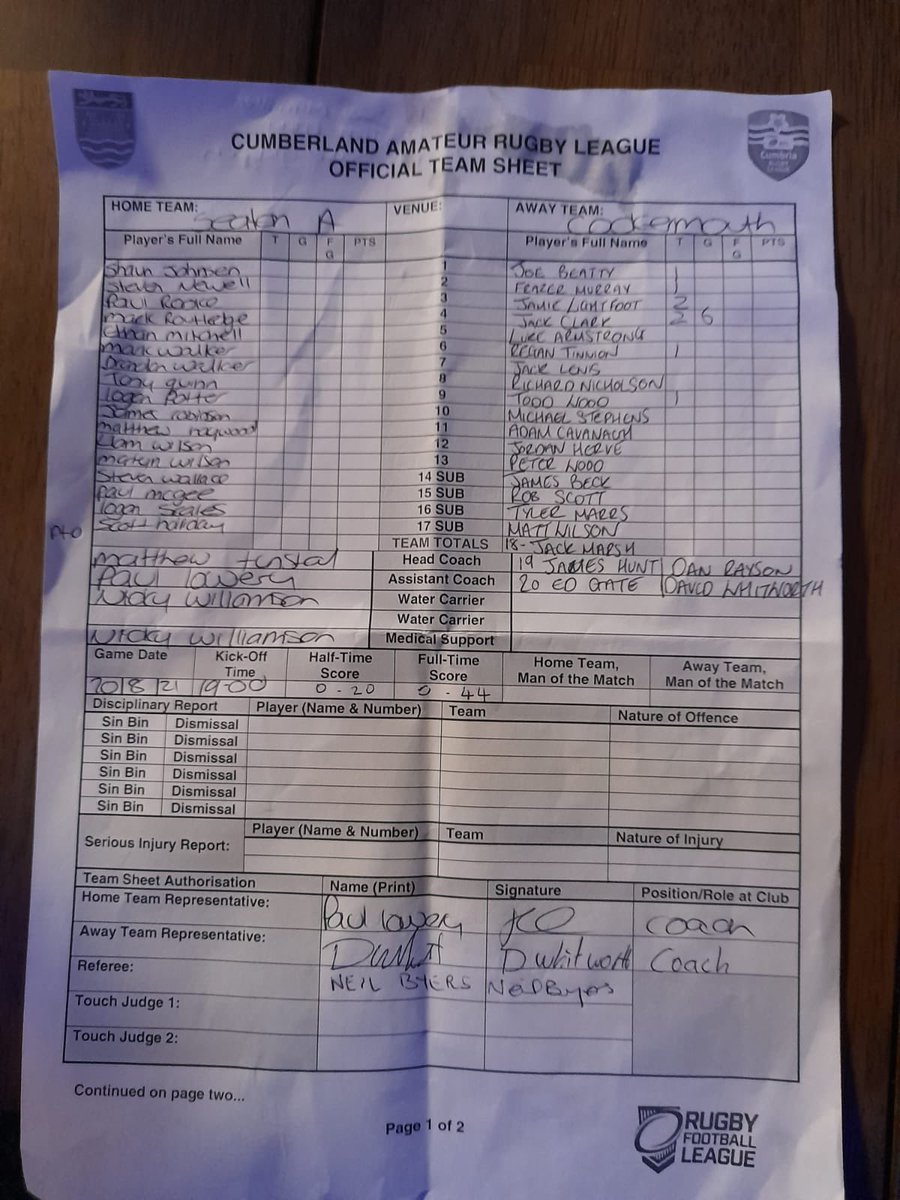 CUMBERLAND AMATEUR RUGBY LEAGUE
OFFICIAL TEAM SHEET
Cumbria
HOME TEAM: Seaton A VENUE: AWAY TEAM: Cockermouth
Player's Full Name T G F G PTS Player's Full Name T G F G PTS
Shaun Johnson 1 JOE BEATTY 1
Steven Newell 2 FRAZER MURRAY 1
Paul 3 JAMIE LIGHTFOOT 2
Mark Routledge 4 JACK CLARK 2 6
Ethan Mitchell 5 LUKE ARMSTRONG
Mark Walker 6 REGAN TINNION 1
Brandon Walker 7 JACK LEWIS
Tony Quinn 8 RICHARD NICHOLSON
Logan Potter 9 TODD WOOD 1
James robinson 10 MICHAEL STEPHENS
matthew haywood 11 ADAM CAVANAGH
Liam wilson 12 JORDAN HERVE
martyn wilson 13 PETER WOOD
Steven wallace 14 SUB JAMES BECK
Paul mcgee 15 SUB ROB SCOTT
logan Scales 16 SUB TYLER MARRS
PTO Scott holliday 17 SUB MATT WILSON
TEAM TOTALS 18- JACK MARSH
matthew tunstal Head Coach 19 JAMES HUNT DAN RAYSON
Paul lowery Assistant Coach 20 ED GATE DAVID WHITWORTH
Nicky Williamson Water Carrier
Water Carrier
Nicky Williamson Medical Support
Game Date Kick-Off Time Half-Time Score Full-Time Score Home Team, Man of the Match Away Team, Man of the Match
20/8/21 19-00 0 - 20 0 - 44
Disciplinary Report Player (Name & Number) Team Nature of Offence
Sin Bin Dismissal
Sin Bin Dismissal
Sin Bin Dismissal
Sin Bin Dismissal
Sin Bin Dismissal
Sin Bin Dismissal
Serious Injury Report: Player (Name & Number) Team Nature of Injury
Team Sheet Authorisation Name (Print) Signature Position/Role at Club
Home Team Representative: Paul lowery Coach
Away Team Representative: D Whitworth Coach
Referee: NEIL BYERS Neil Byers
Touch Judge 1:
Touch Judge 2:
Continued on page two...
Page 1 of 2
RUGBY
FOOTBALL
LEAGUE